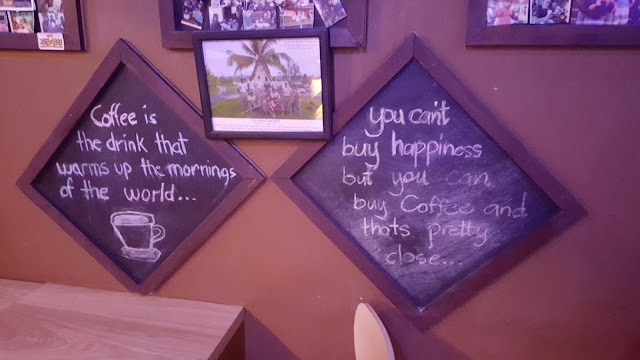 Coffee is
the drink that
warms up the mornings
of the world...
you can't
buy happiness
but you can
buy Coffee and
thats pretty
close...